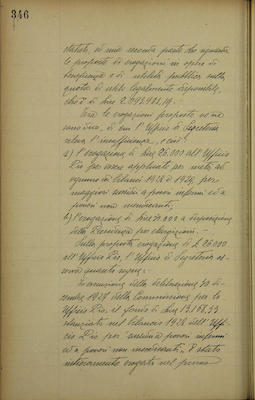 346
statuto, ed una seconda parte che riguarda
le proposte di erogazioni in opere di
beneficenza e di utilità pubblica sulla
quota di utili legalmente disponibile,
cioè di Lire
Tra le erogazioni proposte ve ne
sono due, di cui l'Ufficio di Segreteria
rileva l'inefficienza, e cioè:
a) l'erogazione di Lire 26.000 all'Ufficio
Pio per essere applicate per metà ad
ognuno dei bilanci 1928 e 1929, per
maggiori sussidi a poveri infermi ed a
poveri non mendicanti;
b) l'erogazione di Lire 30.000 a disposizione
della Presidenza per elargizioni. -
Sulla proposta erogazione di L. 26.000
all'Ufficio Pio, l'Ufficio di Segreteria os-
serva quanto segue:
In esecuzione della deliberazione 30 di-
cembre 1927 della Commissione per lo
Ufficio Pio, il fondo di Lire 13.168,33
stanziato nel bilancio 1928 dell'Uffi-
cio Pio per sussidi a poveri infermi
ed a poveri non mendicanti, è stato
interamente erogato nel primo